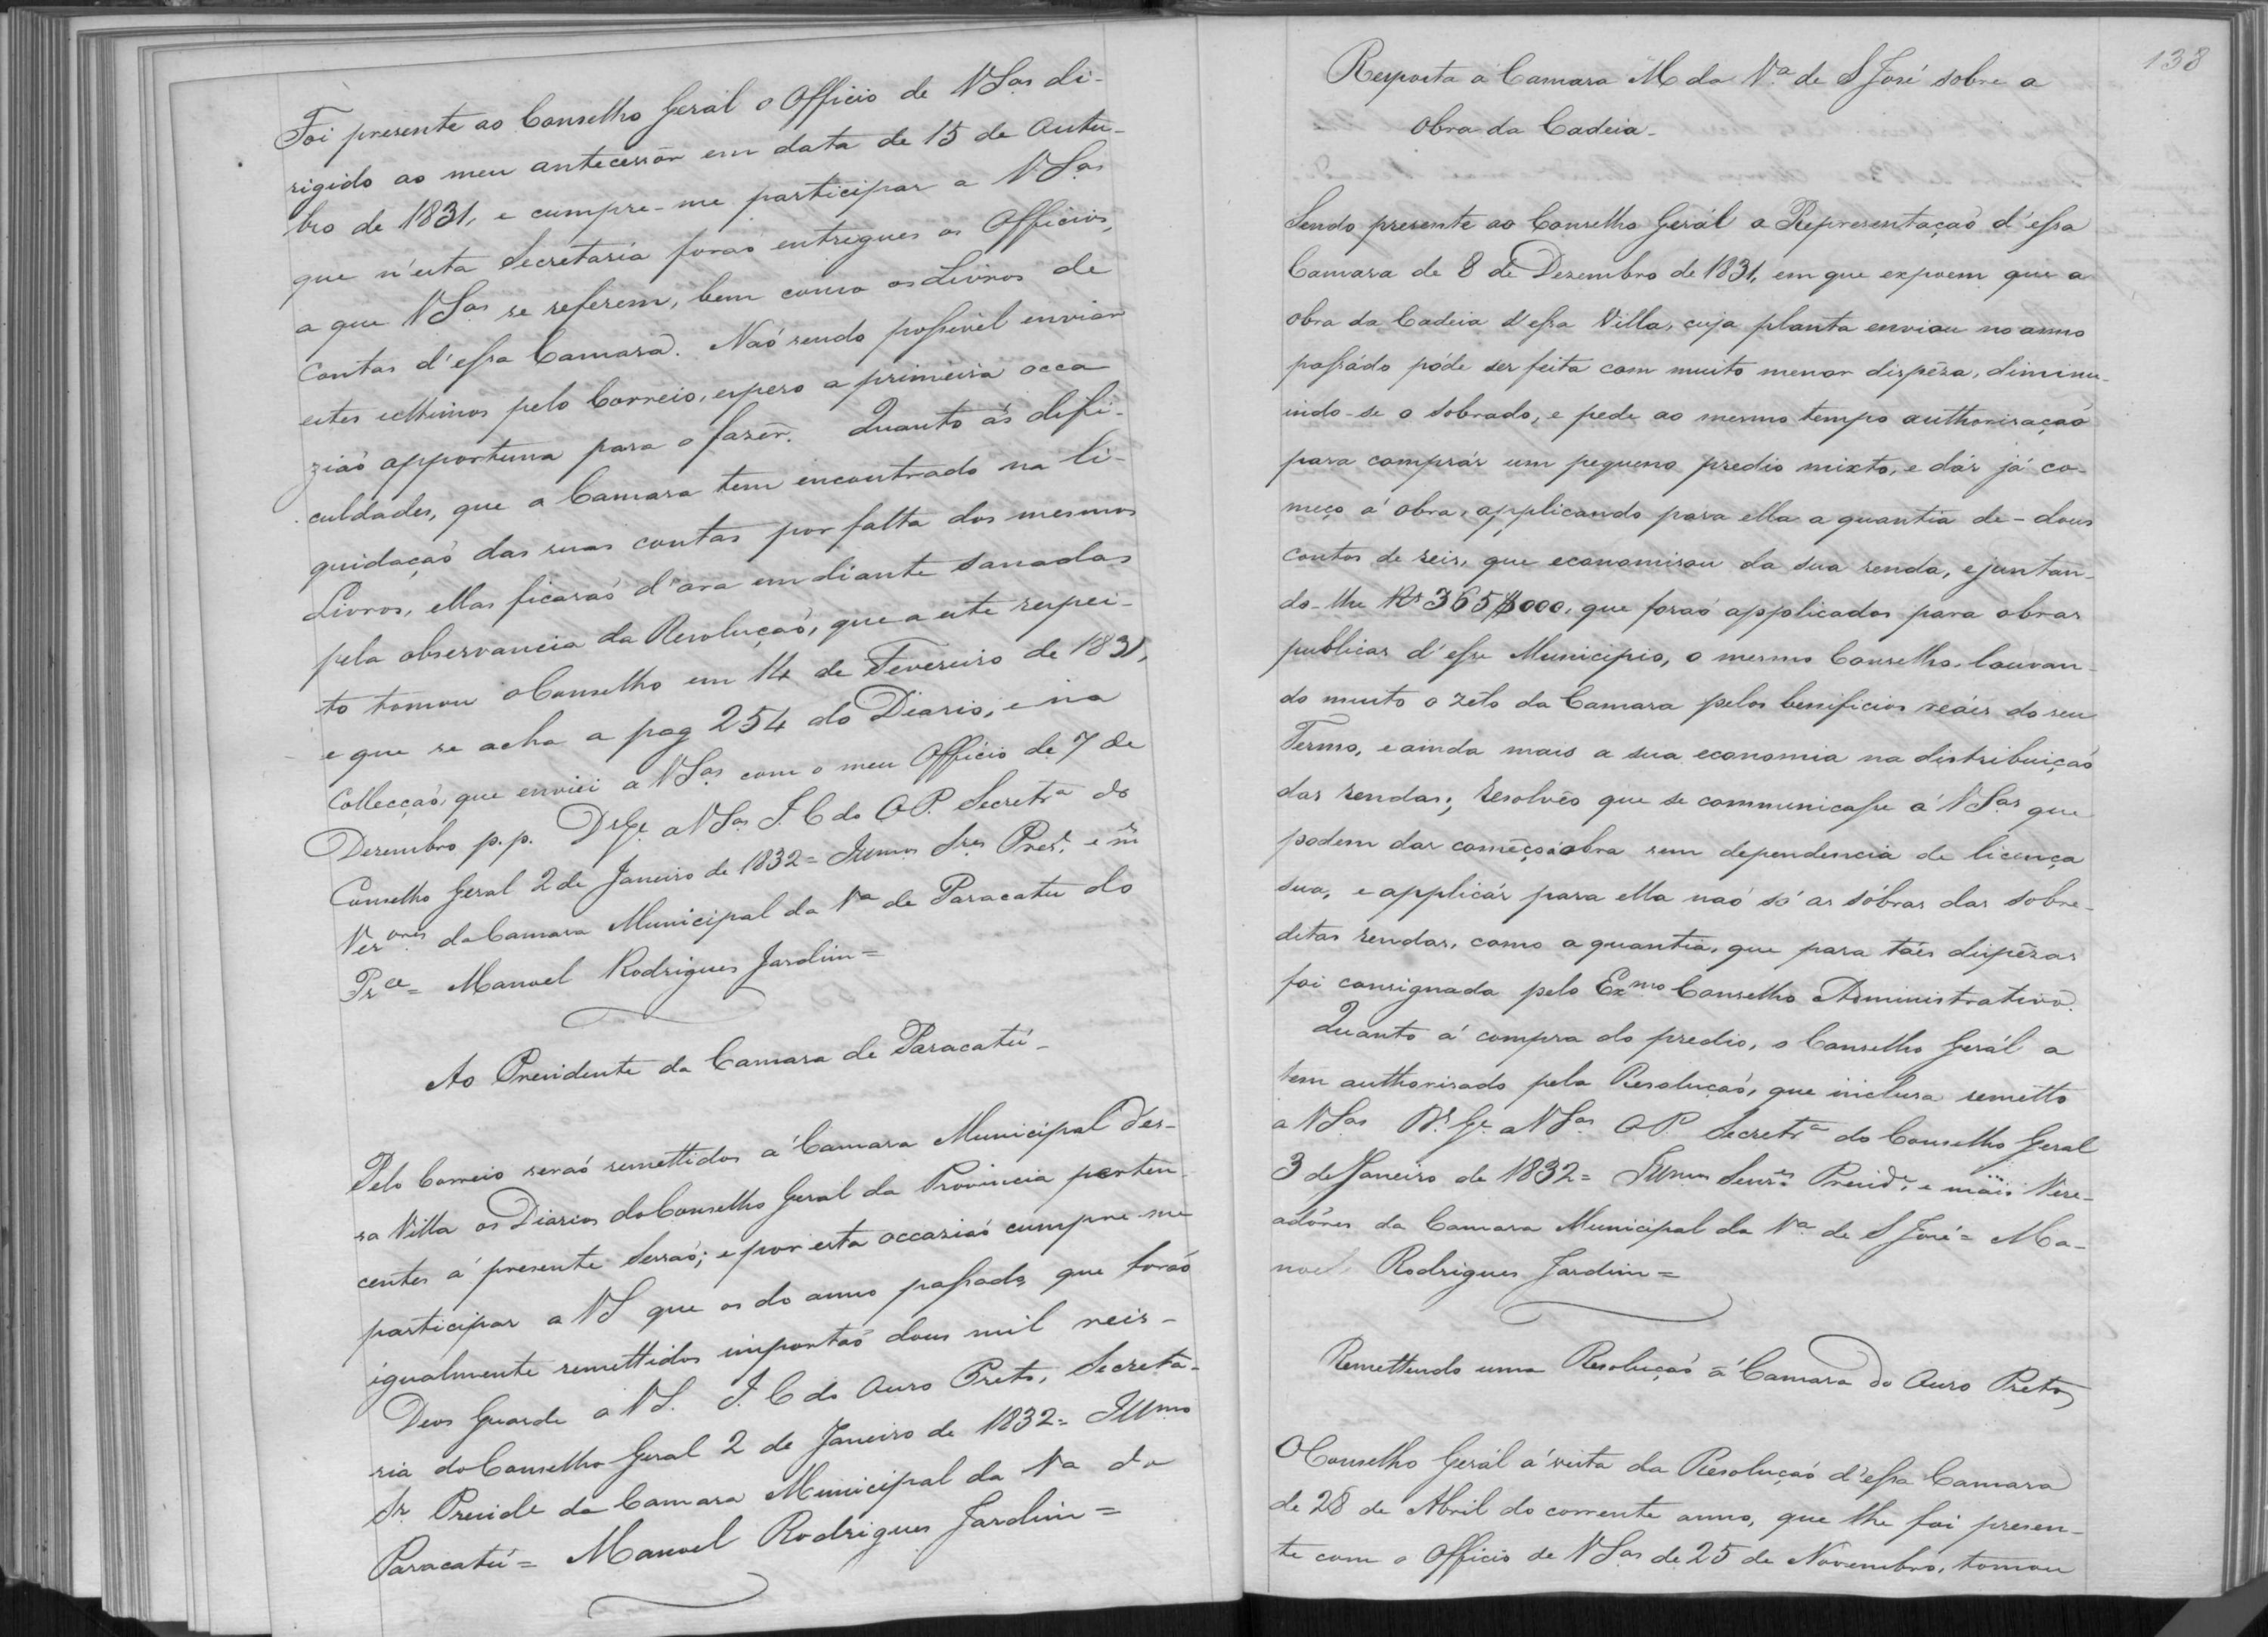 Foi presente ao Conselho Geral o Officio de VSas di-
rigido ao meu antecessôr em data de 15 de Outu-
bro de 1831, e cumpre-me participar a VSas
que n'esta Secretaria foraõ entregues os Officios,
a que VSas se referem, bem como os Livros de
Contas d'essa Camara. Naõ sendo possivel enviar
estes ultimos pelo Correio, espero a primeira occa
ziaõ opportuna para o fazêr. Quanto ás defi-
culdades, que a Camara tem encontrado na li-
quidaçaõ das suas contas por falta dos mesmos
Livros, ellas ficaraõ d'ora em diante sanadas
pela observancia da Resoluçaõ, que a este respei-
to tomou o Conselho em 14 de Fevereiro de 1831,
e que se acha a pag 254 do Diario, e na
Collecçaõ, que enviei a VSas com o meu Officio de 7 de
Dezembro p.p. Ds Ge a VSas I. C do O.P. Secretra do
Conselho Geral 2 de Janeiro de 1832 = Illmos Sres Presे e m
Verores da Camara Municipal da Va de Paracatu do
Prce = Manoel Rodrigues Jardim =
Ao Presidente da Camara de Paracatú -
Pelo Correio seraõ remettidos á Camara Municipal d'es-
sa Villa os Diarios do Conselho Geral da Provincia perten-
centes á presente Sessaõ; e por esta occaziaõ cumpre-me
participar a VS que os do anno passado, que foraõ
igualmente remettidos importaõ dous mil reis -
Deos Guarde a VS. I. C do Ouro Preto, Secreta-
ria do Conselho Geral 2 de Janeiro de 1832 = Illmo
Sr. Preside da Camara Municipal da Va do
Paracatú = Manoel Rodrigues Jardim =
138
Resposta á Camara M da Va de S José sobre a
obra da Cadeia -
Sendo presente ao Conselho Geral a Representaçaõ d'essa
Camara de 8 de Dezembro de 1831, em que expoem que a
obra da Cadeia d'essa Villa, cuja planta enviou no anno
passádo póde ser feita com muito menor dispêza, diminu-
indo-se o sobrado, e pede ao mesmo tempo authorisaçaõ
para comprár um pequeno predio mixto, e dár já co-
meço á obra, applicando para ella a quantia de - dous
contos de reis, que economisou da sua renda, e juntan-
do-lhe Rs 365$000, que foraõ applicados para obras
publicas d'esse Municipio, o mesmo Conselho, louvan-
do muito o zêlo da Camara pelos benificios reáes do seu
Termo, e ainda mais a sua economia na distribuiçaõ
das rendas; resolvêo que se communicasse á VSas que
podem dar comêço á obra sem dependencia de licença
sua, e applicár para ella naõ só as sóbras das sobre-
ditas rendas, como a quantia, que para táes dispêzas
foi consignada pelo Exmo Conselho Administrativo.
Quanto á compra do predio, o Conselho Gerál a
tem authorisado pela Resoluçaõ, que inclusa remetto
a VSas Ds. Ge. a VSas O.P. Secretra do Conselho Geral
3 de Janeiro de 1832 = Illmos Senres Preside. e máis Vere-
adóres da Camara Municipal da Va de S José = Ma-
noel Rodrigues Jardim =
Remettendo uma Resoluçaõ á Camara do Ouro Preto
O Conselho Gerál á vista da Resoluçaõ d'essa Camara
de 28 de Abril do corrente anno, que lhe foi presen-
te com o Officio de VSas de 25 de Novembro, tomou